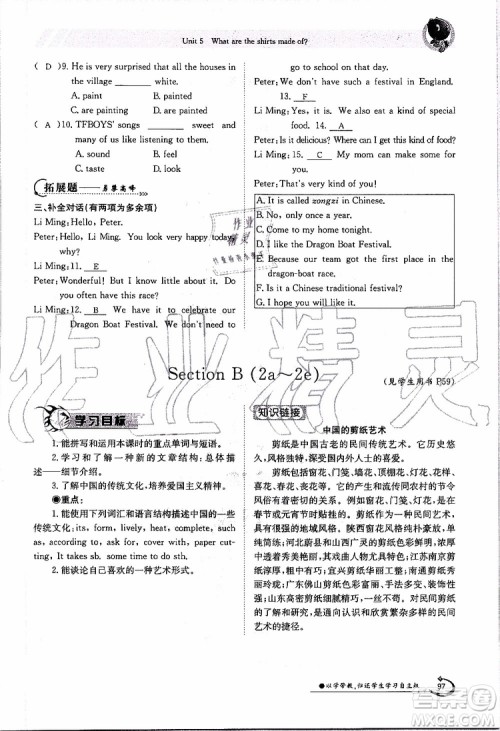 Unit 5 What are the shirts made of?
( D )9. He is very surprised that all the houses in
the village ______ white.
A. paint B. painted
C. are painting D. are painted
( A )10. TFBOYS' songs ______ sweet and
many of us like listening to them.
A. sound B. feel
C. taste D. look
拓展题——勇攀高峰
三、补全对话(有两项为多余项)
Li Ming: Hello, Peter.
Peter: Hello, Li Ming. You look very happy today,
why?
Li Ming: 11. E
Peter: Wonderful! But I'm surprised to hear that. Why
do you often have this race?
Li Ming: 12. B We have it during our
Dragon Boat Festival. We don't need to
go to school on that day.
Peter: We don't have such a festival in England.
13. F
Li Ming: Yes, it is. Usually we eat a kind of special
food. 14. A
Peter: Is it delicious? Where can I get this kind of food?
Li Ming: 15. C My mom can make some.
Peter: Thank you very much.
A. It is called zongzi in Chinese.
B. No, only once a year.
C. Come to my home tonight.
D. I like the Dragon Boat Festival.
E. Because our team got the first place in the
dragon-boat race.
F. Is it a Chinese traditional festival?
G. I hope you will have some.
Section B (2a~2e)
(见学生用书 P59)
学习目标
1. 能拼写和运用本课时的重点单词与短语。
2. 学习和了解一种新的文章结构:总体介绍——
细节介绍。
3. 了解中国的传统文化,培养爱国主义精神。
●重点:
1. 能使用下列词汇和语言结构描述中国的一些
传统文化: its, form, lively, heat, complete, such
as, according to, ask for help, cover with, paper cut-
ting, It takes sb. some time to do sth.
2. 能谈论自己喜欢的一种艺术形式。
知识链接
中国的剪纸艺术
剪纸是中国古老的民间传统艺术,它历史悠
久,风格独特,深受国内外人士的喜爱。
剪纸包括窗花、门笺、墙花、顶棚花、灯花、花
样、喜花、春花、丧花等。例如窗花、门笺、灯花,是在
春节或元宵节时张贴的剪纸。各地剪纸具有一些
很强的地域风格,陕西窗花风格纯朴豪放,单
纯简练;河北蔚县和山西剪纸秀美艳丽;山东剪纸中
透着秀美艳丽,宜兴剪纸华丽工整;江苏南京剪
纸、浙江剪纸玲珑剔透,秀丽中见清秀;南通剪纸秀
丽玲珑;广东佛山剪纸色彩富丽绚烂;福建剪纸的特
点;山东高密剪纸色彩多样。剪纸是一种民间
艺术,是通向认识和欣赏繁杂多样的民间
艺术的捷径。
●以学学教,归还学生学习自主权
97
作业精灵